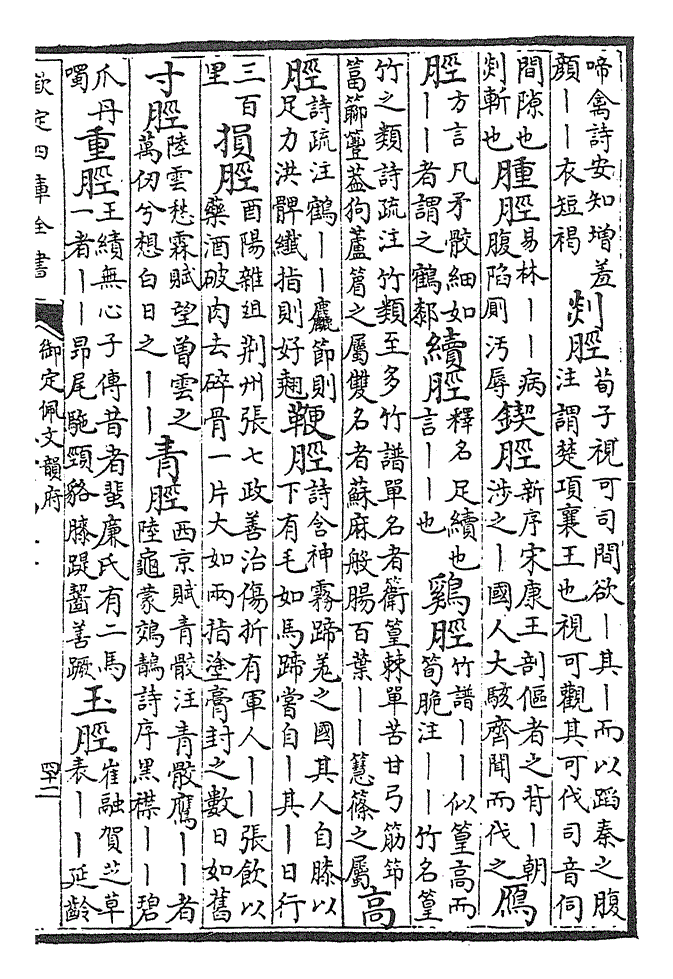 啼禽詩安知增羞
顏丨丨衣短褐
剡脛
荀子視可司間欲丨其丨而以蹈秦之腹
注謂楚項襄王也視可觀其可伐司音伺
間隙也
剡斬也
腫脛
易林丨丨病
腹陷厠汚辱
鍥脛
新序宋康王剖傴者之背丨朝
涉之丨國人大駭齊聞而伐之
鴈
脛
方言凡矛骹細如
丨丨者謂之鶴厀
續脛
釋名足續也
言丨丨也
鷄脛
竹譜丨丨似篁高而
筍脆注丨丨竹名篁
竹之類詩疏注竹類至多竹譜單名者篁棘單苦甘弓筋筇
狗蘆之屬雙名者蘇麻般腸百葉丨丨篠之屬
高
脛
詩疏注鶴丨丨麤節則
足力洪髀纖指則好翹
鞭脛
詩含神霧蹄羗之國其人自膝以
下有毛如馬蹄嘗自丨其丨日行
三百
里
損脛
酉陽雜俎荆州張七政善治傷折有軍人丨丨張飲以
藥酒破肉去碎骨一片大如兩指塗膏封之數日如舊
寸脛
陸雲愁霖賦望曾雲之
萬仞兮想白日之丨丨
青脛
西京賦青骹注青骹鷹丨丨者
陸龜蒙鵁鶄詩序黑襟丨丨碧
爪丹
噣
重脛
王績無心子傳昔者蜚廉氏有二馬
一者丨丨昂尾駞頸貉膝踶齧善蹶
玉脛
崔融賀芝草
表丨丨延齡
欽定四庫全書
御定佩文韻府
四十二